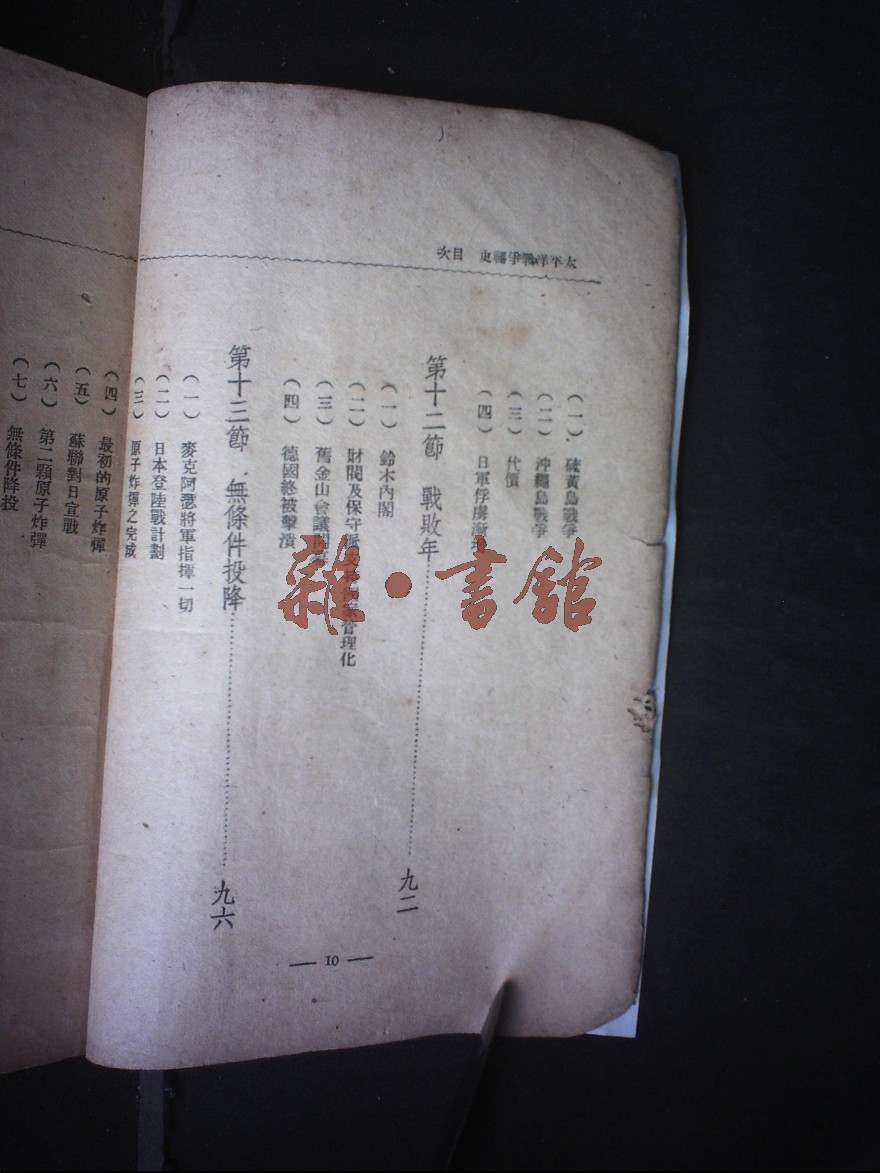 太平洋戰爭秘史 目次
(一) 硫黃島戰爭
(二) 沖繩島戰爭
(三) 代價
(四) 日軍俘虜漸增
第十二節 戰敗年 九二
(一) 鈴木內閣
(二) 財閥及保守派 管理化
(三) 舊金山會議開
(四) 德國終被擊潰
第十三節 無條件投降 九六
(一) 麥克阿瑟將軍指揮一切
(二) 日本登陸戰計劃
(三) 原子炸彈之完成
(四) 最初的原子炸彈
(五) 蘇聯對日宣戰
(六) 第二顆原子炸彈
(七) 無條件降投
— 10 —
雜·書館